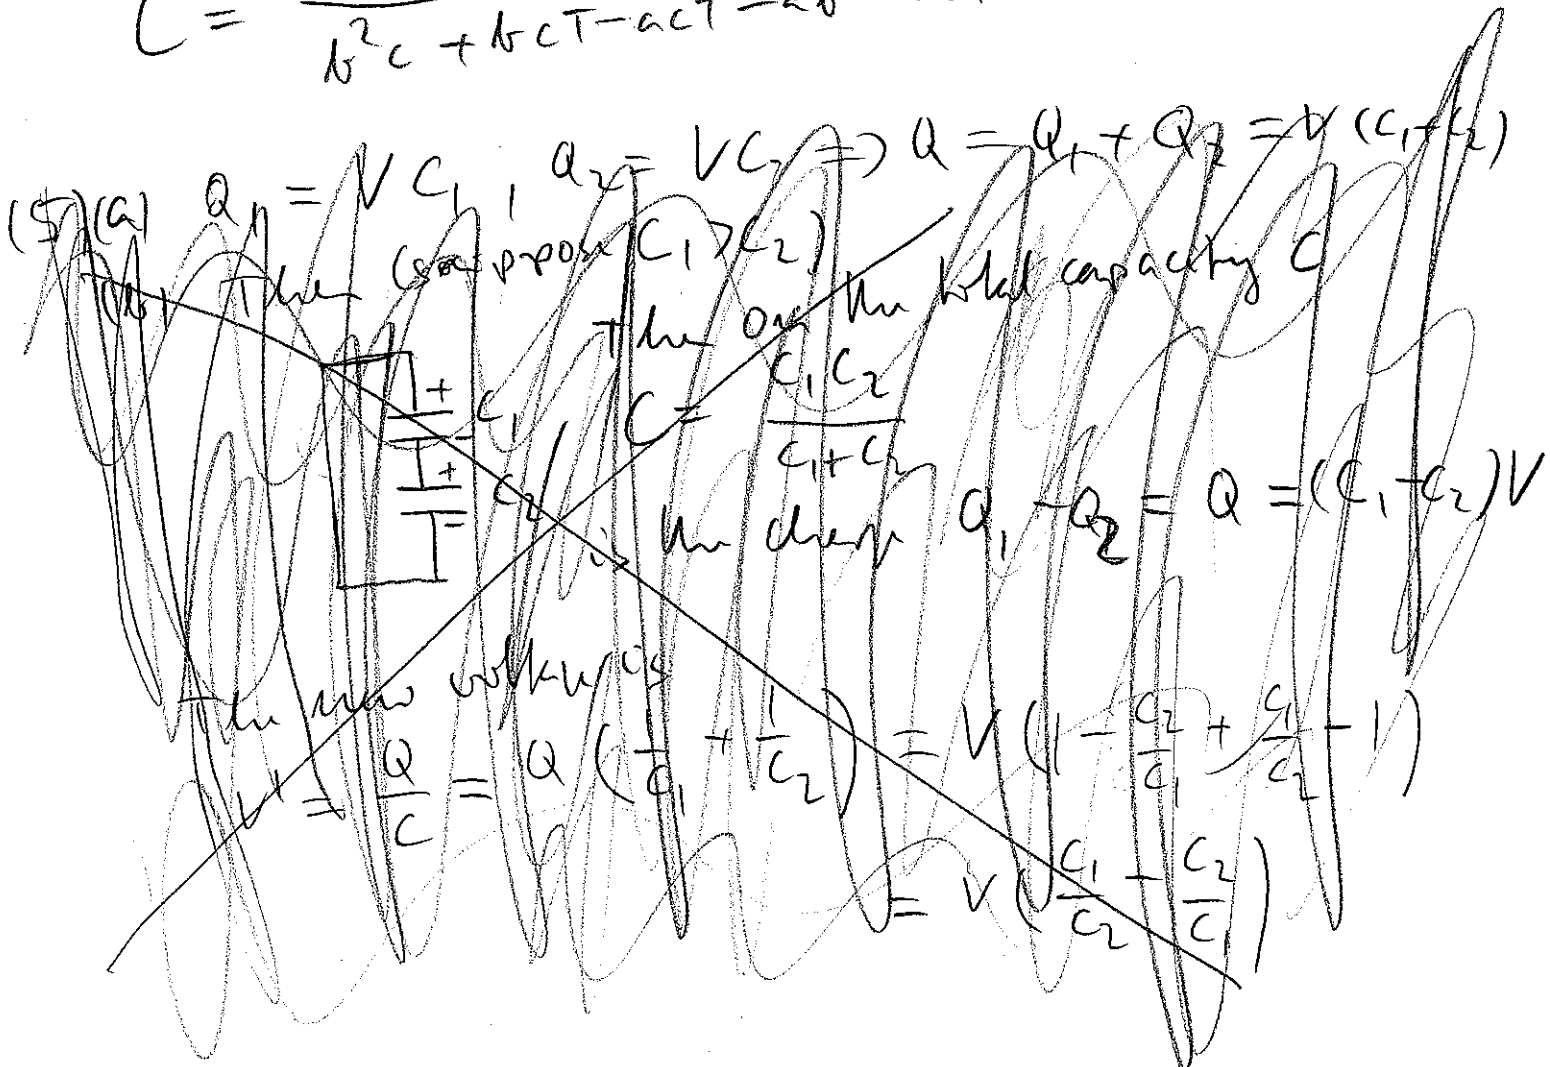 C =
b²c + bcT - acT - ab
(5) (a) Q₁ = V C₁, Q₂ = VC₂ => Q = Q₁ + Q₂ = V (C₁+C₂)
(b) Then (suppose C₁ > C₂)
the total capacity C
+ C₁
+ C₂
-
C = C₁C₂ / C₁+C₂
is the charge Q₁ - Q₂ = Q = (C₁-C₂)V
The new voltage is
V' = Q/C = Q (1/C₁ + 1/C₂) = V (1 - C₂/C₁ + C₁/C₂ - 1)
= V (C₁/C₂ - C₂/C₁)